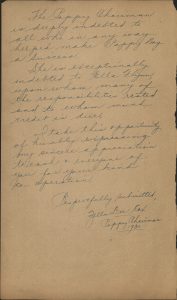 The Poppy Chairman
is deeply indebted to
all who in any way
helped make Poppy Day
a success
She is exceptionally
indebted to Ella Flynn
upon whom many of
the responsibilities rested
and to whom much
credit is due.
I take this opportunity
of humbly expressing
my sincere appreciation
to each & everyone of
you for your kind
co-operation.
Respectfully submitted,
Poppy Chairman